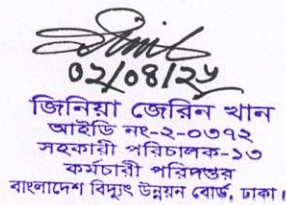 ০২/০৪/২৬
জিনিয়া জেরিন খান
আইডি নং-২-০৩৭২
সহকারী পরিচালক-১৩
কর্মচারী পরিদপ্তর
বাংলাদেশ বিদ্যুৎ উন্নয়ন বোর্ড, ঢাকা।